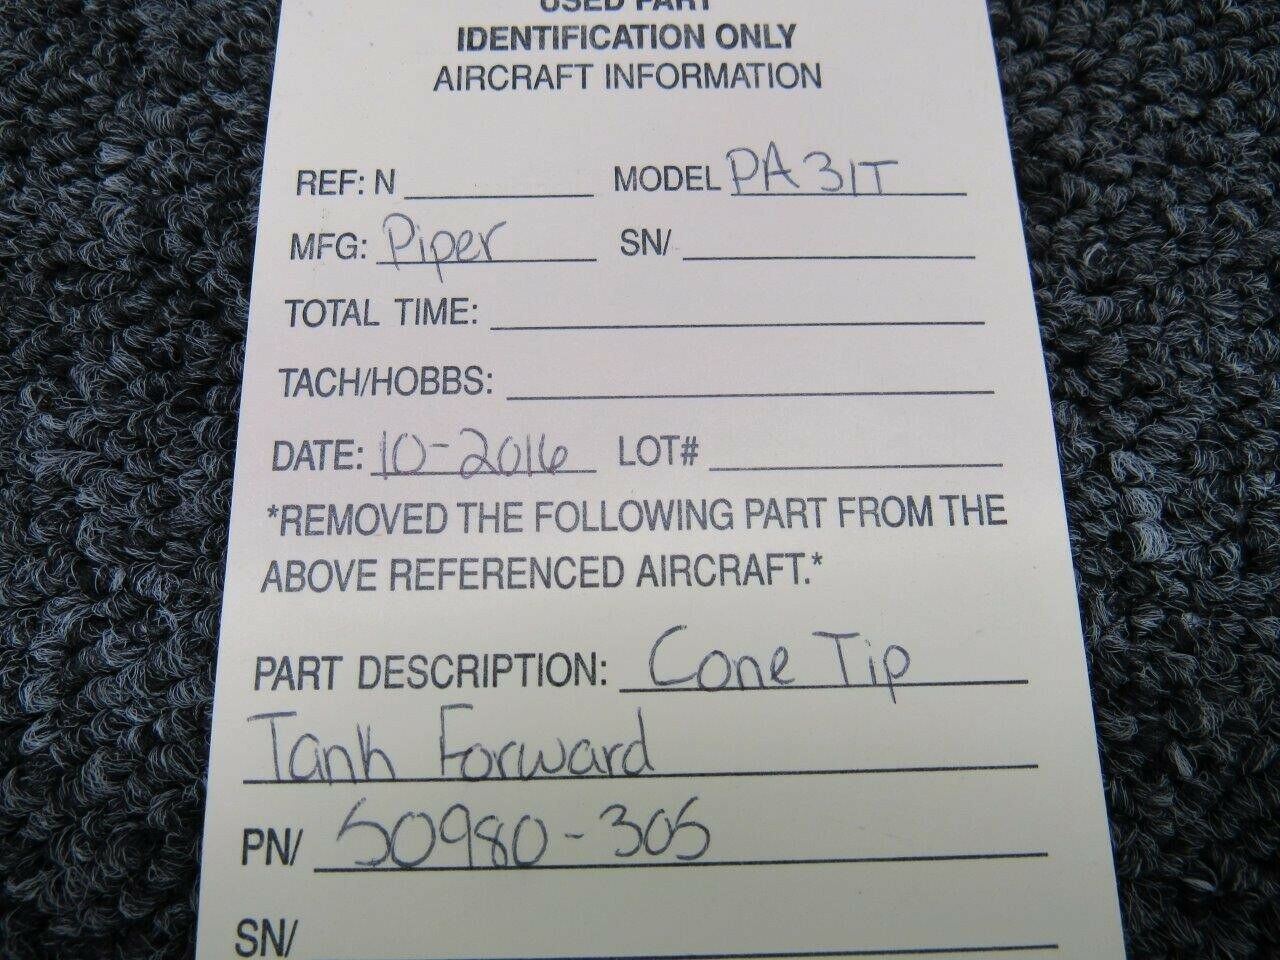 USED PART
IDENTIFICATION ONLY
AIRCRAFT INFORMATION
REF: N MODEL PA31T
MFG: Piper SN/
TOTAL TIME:
TACH/HOBBS:
DATE: 10-2016 LOT#
*REMOVED THE FOLLOWING PART FROM THE
ABOVE REFERENCED AIRCRAFT.*
PART DESCRIPTION: Cone Tip
Tank Forward
PN/ 50980-305
SN/